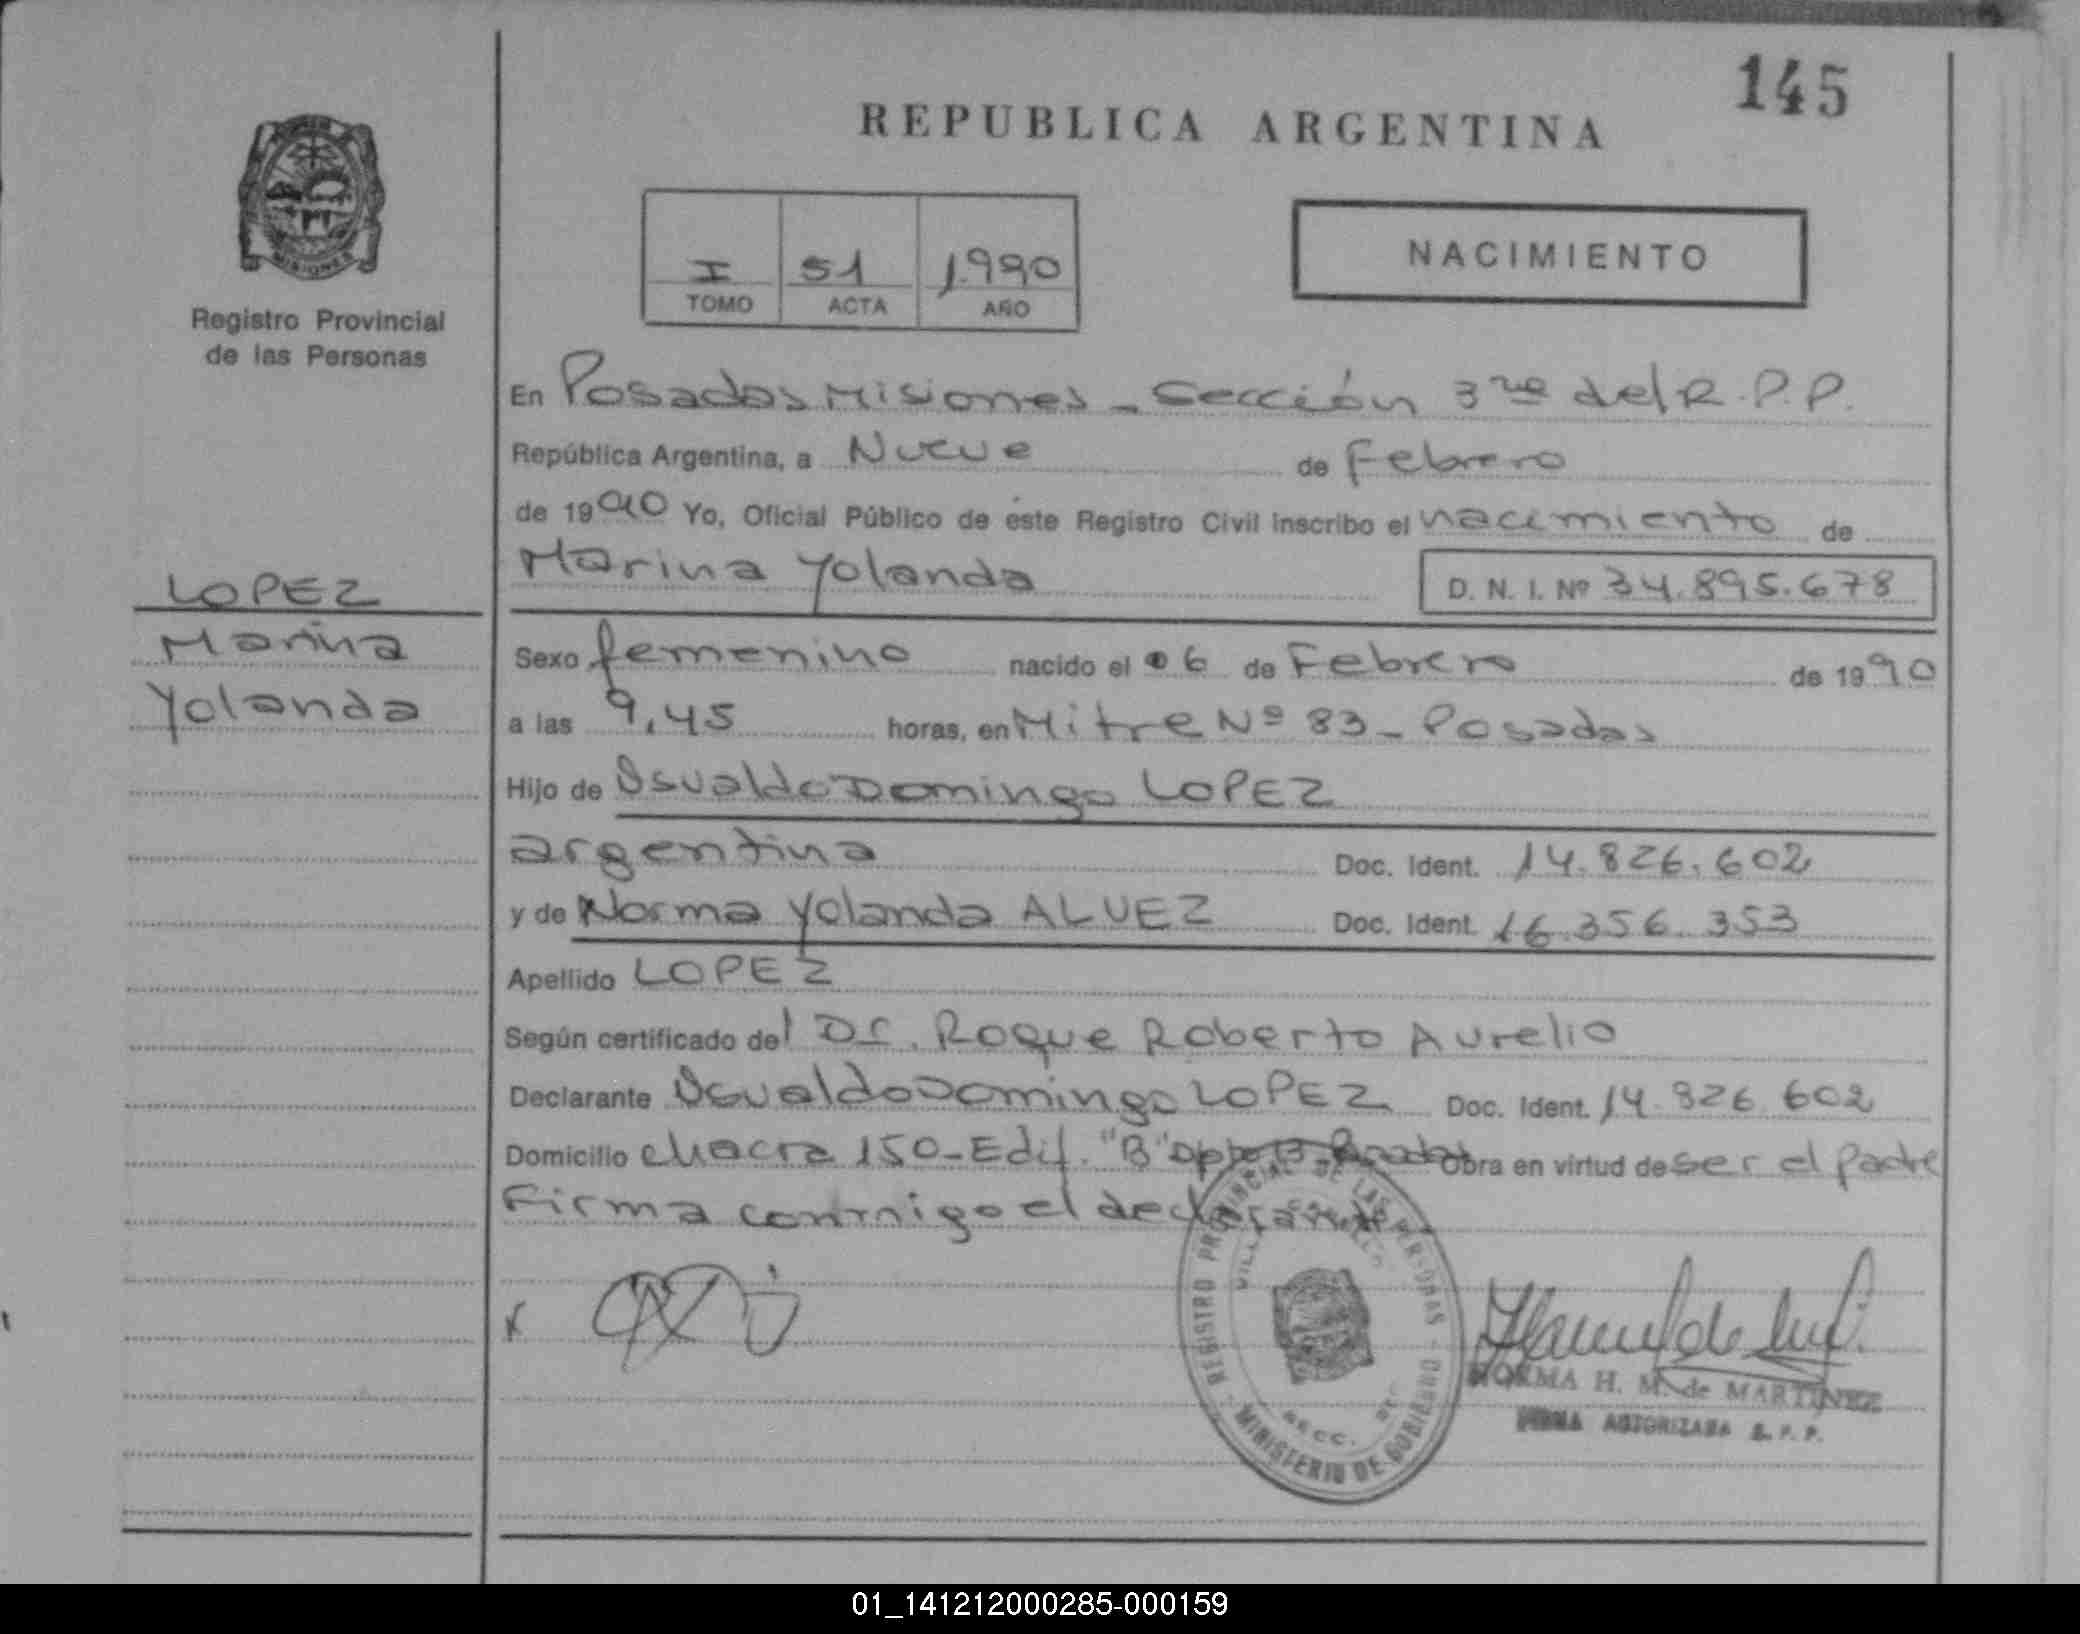 145
REPUBLICA ARGENTINA
MISIONES
Registro Provincial
de las Personas
I 51 1.990
TOMO ACTA AÑO
NACIMIENTO
En Posadas Misiones - Sección 3ra del R.P.P.
República Argentina, a Nueve de Febrero
de 1990 Yo, Oficial Público de este Registro Civil inscribo el nacimiento de
Marina Yolanda D. N. I. Nº 34.895.678
LOPEZ
Marina
Yolanda
Sexo femenino nacido el 06 de Febrero de 1990
a las 9,45 horas, en Mitre Nº 83 - Posadas
Hijo de Osvaldo Domingo LOPEZ
argentina Doc. Ident. 14.826.602
y de Norma Yolanda ALVEZ Doc. Ident. 16.356.353
Apellido LOPEZ
Según certificado del Dr. Roque Roberto Aurelio
Declarante Osvaldo Domingo LOPEZ Doc. Ident. 14.826.602
Domicilio chacra 150 - Edif. "B" Dpto Obra en virtud de ser el padre
Firma conmigo el declarante
x
REGISTRO PROVINCIAL DE LAS PERSONAS - MINISTERIO DE GOBIERNO
SECC.
NORMA H. M. de MARTINEZ
FIRMA AUTORIZADA R. P. P.
01_141212000285-000159